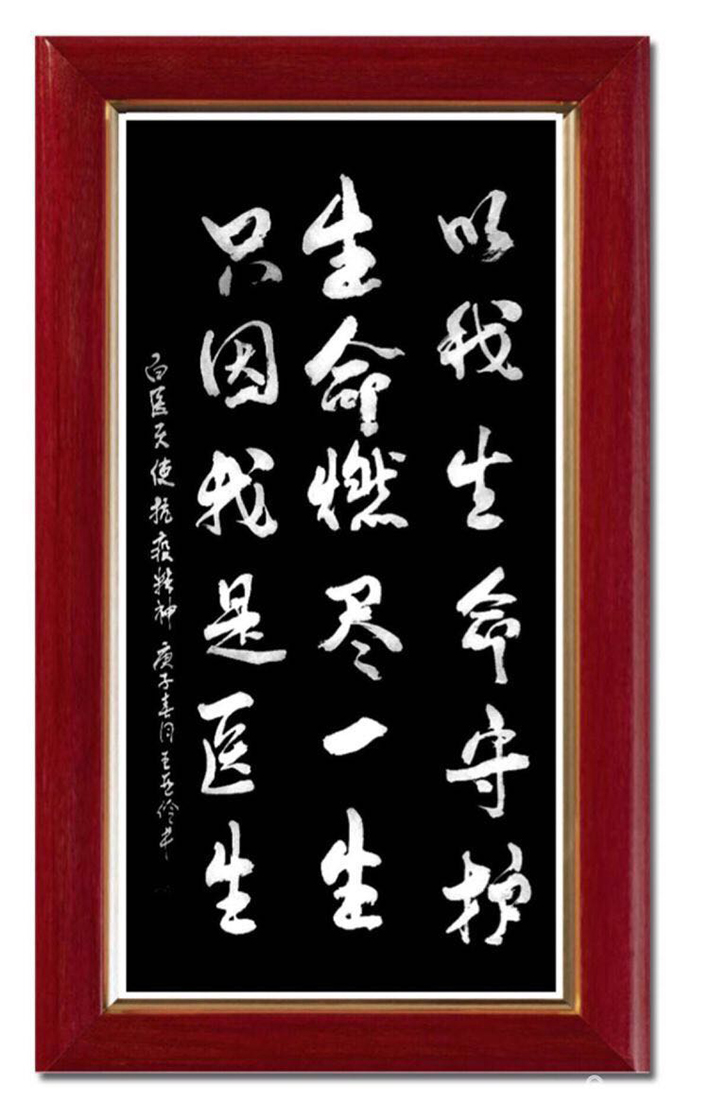 以我生命守护
生命燃尽一生
只因我是医生
白医天使抗疫精神 庚子春月 王